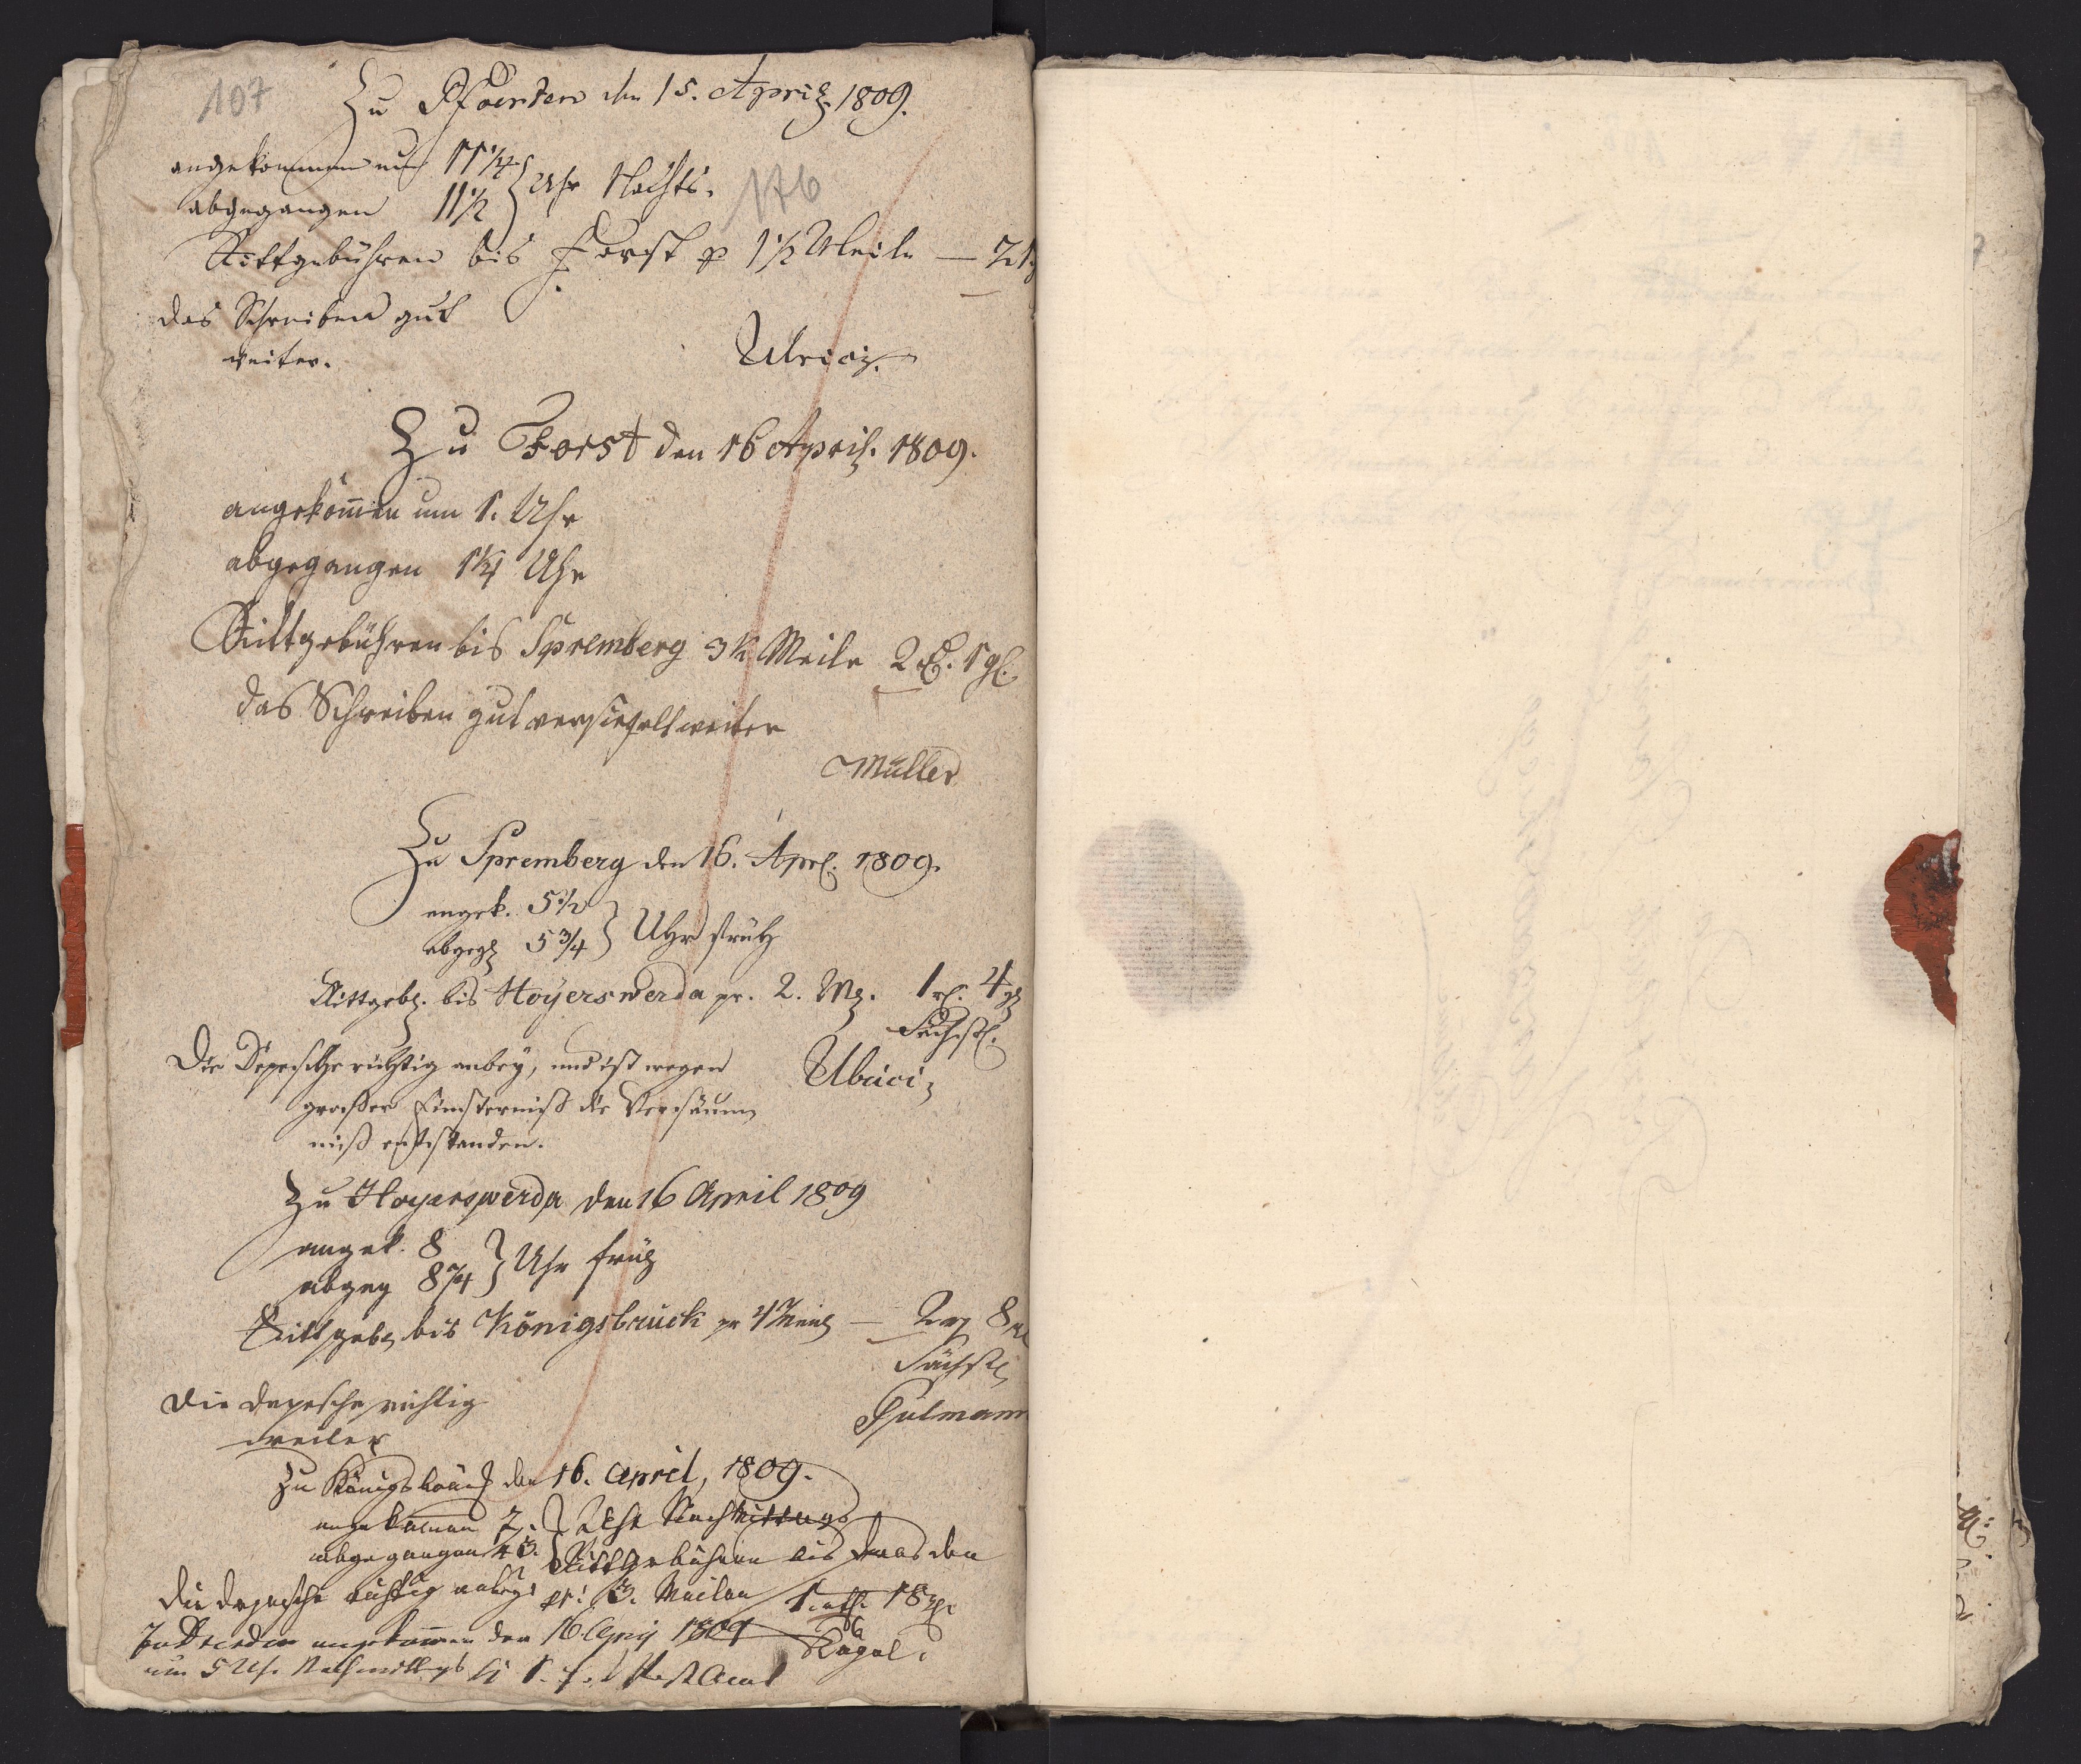 107
Zu Pfoerten den 15. April 1809.
angekommen um 11 1/4 } Uhr Nachts.
abgegangen 11 1/2
176
Rittgebühren bis Forst p 1 1/2 Meile —
das Schreiben gut
weiter.
Ulrici
Zu Forst den 16 April. 1809.
angekom̅en um 1. Uhr
abgegangen 1 1/4 Uhr
Rittgebühren bis Spremberg 3 1/2 Meile 2 rl. 1 gl.
das Schreiben gut versiegelt weiter
Müller
Zu Spremberg den 16. Aprl. 1809.
angek. 5 1/2 } Uhr früh
abgeg 5 3/4
Rittgeb. bis Hoyerswerda pr. 2. Ml. 1 rl. 4 gl
Sächsl.
Die Depesche richtig anbey, und ist wegen
großer Finsterniß die Versäum
niß entstanden.
Zu Hoyerswerda den 16 April 1809
angek. 8 } Uhr früh
abgeg 8 1/4
Rittgeb bis Königsbrück pr 4 Meil — 2 rl 8
Sächsl
Die Depesche richtig
weiter
Zu Königsbrück den 16. April, 1809.
angekommen 2. } Uhr Nachmittags
abgegangen
Rittgebühren bis Dresden
Die Depesche richtig anbey pr. 3. Meilen 1. rth. 18 gl.
Nagel.
In Dresden angekommen den 16 April 1809
um 5 Uhr Nachmittags Post Amt